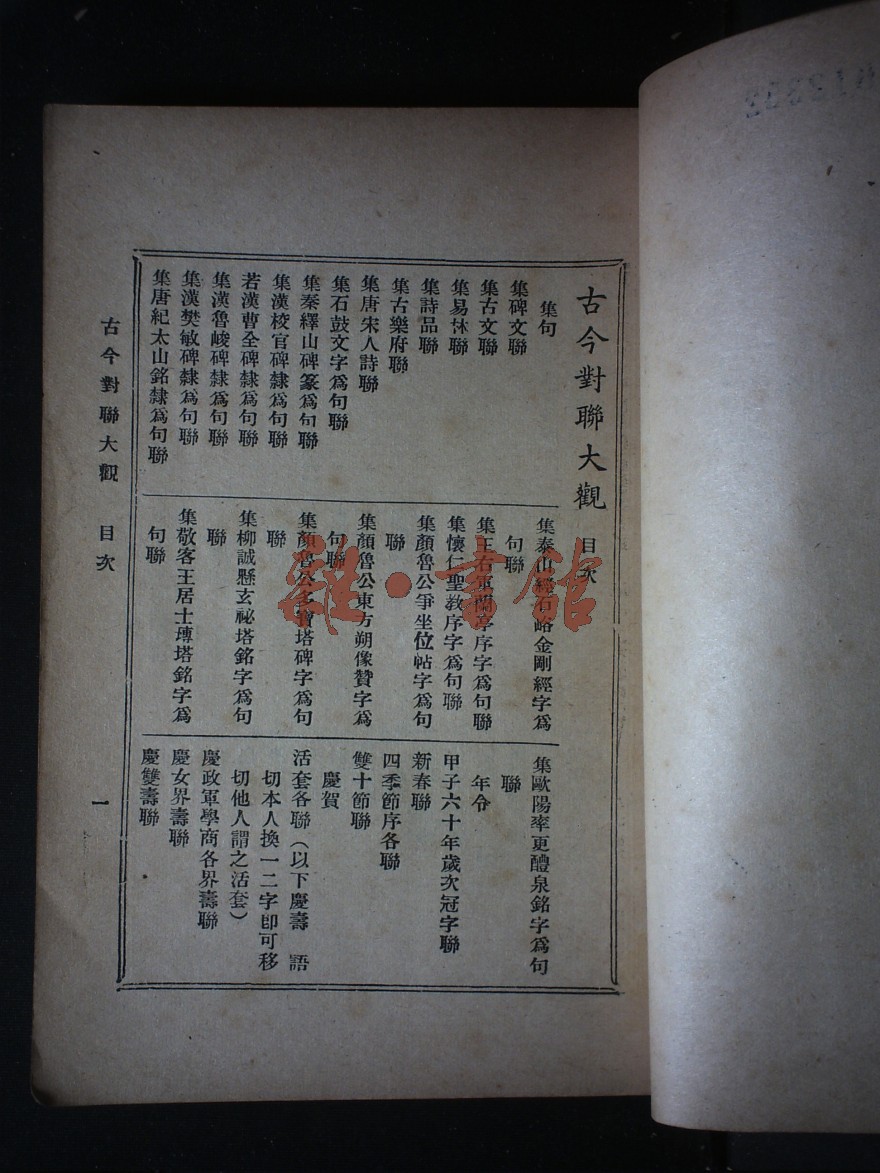 古今對聯大觀 目次
集句
集碑文聯
集古文聯
集易林聯
集詩品聯
集古樂府聯
集唐宋人詩聯
集石鼓文字爲句聯
集秦繹山碑篆爲句聯
集漢校官碑隸爲句聯
若漢曹全碑隸爲句聯
集漢魯峻碑隸爲句聯
集漢樊敏碑隸爲句聯
集唐紀太山銘隸爲句聯
集泰山經石峪金剛經字爲
句聯
集王右軍蘭亭序字爲句聯
集懷仁聖教序字爲句聯
集顏魯公爭坐位帖字爲句
聯
集顏魯公東方朔像贊字爲
句聯
集顏魯公多寶塔碑字爲句
聯
集柳誠懸玄祕塔銘字爲句
聯
集敬客王居士塼塔銘字爲
句聯
集歐陽率更醴泉銘字爲句
聯
年令
甲子六十年歲次冠字聯
新春聯
四季節序各聯
雙十節聯
慶賀
活套各聯(以下慶壽 語
切本人換一二字卽可移
切他人謂之活套)
慶政軍學商各界壽聯
慶女界壽聯
慶雙壽聯
古今對聯大觀 目次
一
雜·書館